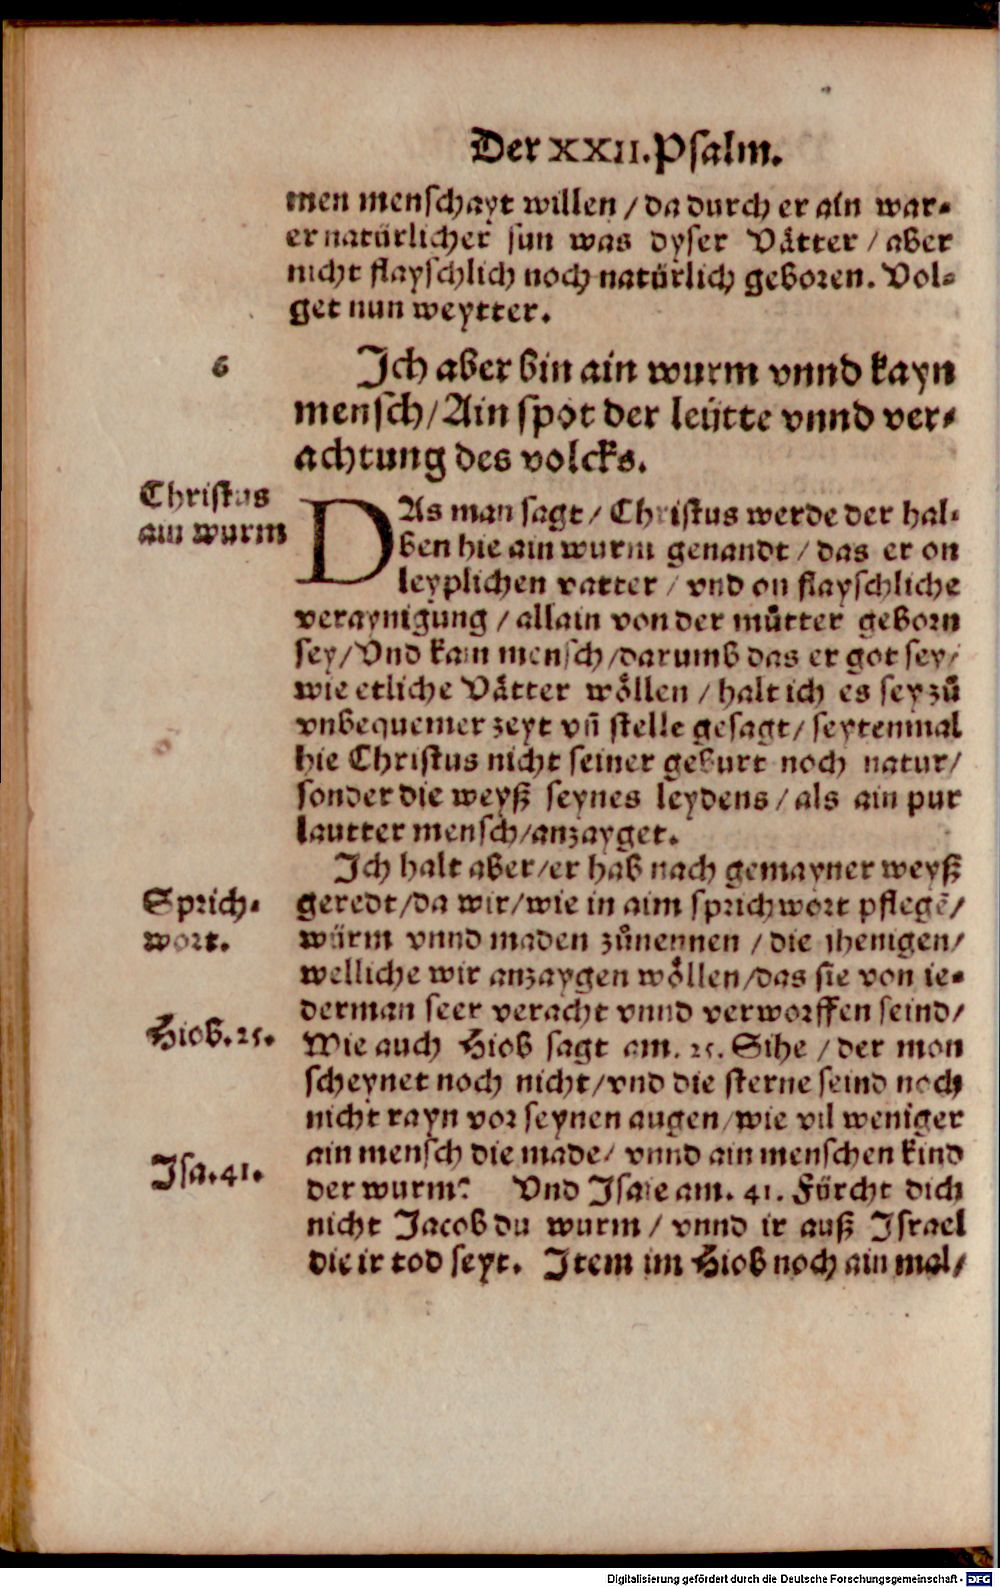 Der XXII. Psalm.
men menschayt willen / da durch er ain war⸗
er natürlicher sun was dyser Vätter / aber
nicht flayschlich noch natürlich geboren. Vol⸗
get nun weytter.
6
Jch aber bin ain wurm vnnd kayn
mensch / Ain spot der leütte vnnd ver⸗
achtung des volcks.
Christus
ain wurm
DAs man sagt / Christus werde der hal⸗
ben hie ain wurm genandt / das er on
leyplichen vatter / vnd on flayschliche
veraynigung / allain von der můtter geborn
sey / Vnd kain mensch / darumb das er got sey /
wie etliche Vätter wöllen / halt ich es sey zů
vnbequemer zeyt vn̄ stelle gesagt / seytenmal
hie Christus nicht seiner geburt noch natur /
sonder die weyß seynes leydens / als ain pur
lautter mensch / anzayget.
Jch halt aber / er hab nach gemayner weyß
Sprich⸗
wort.
geredt / da wir / wie in aim sprichwort pflegē /
würm vnnd maden zůnennen / die ihenigen /
welliche wir anzaygen wöllen / das sie von ie⸗
derman seer veracht vnnd verworffen seind /
Hiob. 25.
Wie auch Hiob sagt am. 25. Sihe / der mon
scheynet noch nicht / vnd die sterne seind noch
nicht rayn vor seynen augen / wie vil weniger
ain mensch die made / vnnd ain menschen kind
Jsa. 41.
der wurm? Vnd Jsaie am. 41. Förcht dich
nicht Jacob du wurm / vnnd ir auß Jsrael
die ir tod seyt. Jtem im Hiob noch ain mal /
Digitalisierung gefördert durch die Deutsche Forschungsgemeinschaft - DFG